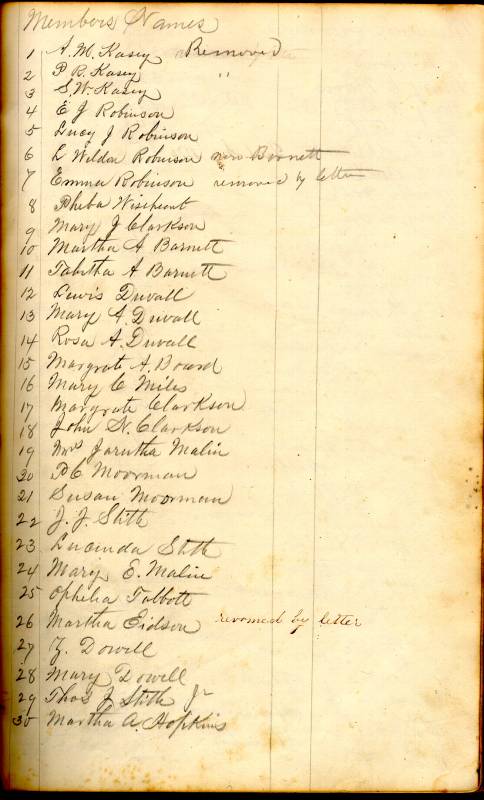 Members Names
1 A. M. Kasey Removed
2 P B. Kasey "
3 S. W. Kasey
4 E J Robinson
5 Lucy J Robinson
6 L Weldon Robinson now Barnett
7 Emma Robinson removed by letter
8 Pheba
9 Mary J Clarkson
10 Martha A Barnett
11 Tabitha A Barnett
12 Lewis Duvall
13 Mary A. Duvall
14 Rosa A. Duvall
15 Margrate A. Board
16 Mary C Miles
17 Margrate Clarkson
18 John N. Clarkson
19 Mrs Jarutha Malin
20 P C Moorman
21 Susan Moorman
22 J. J. Stith
23 Lucinda Stith
24 Mary E. Malin
25 Ophelia Talbott
26 Martha Eidson revomed by letter
27 Z. Dowell
28 Mary Dowell
29 Thos J Stith Jr
30 Martha A. Hopkins